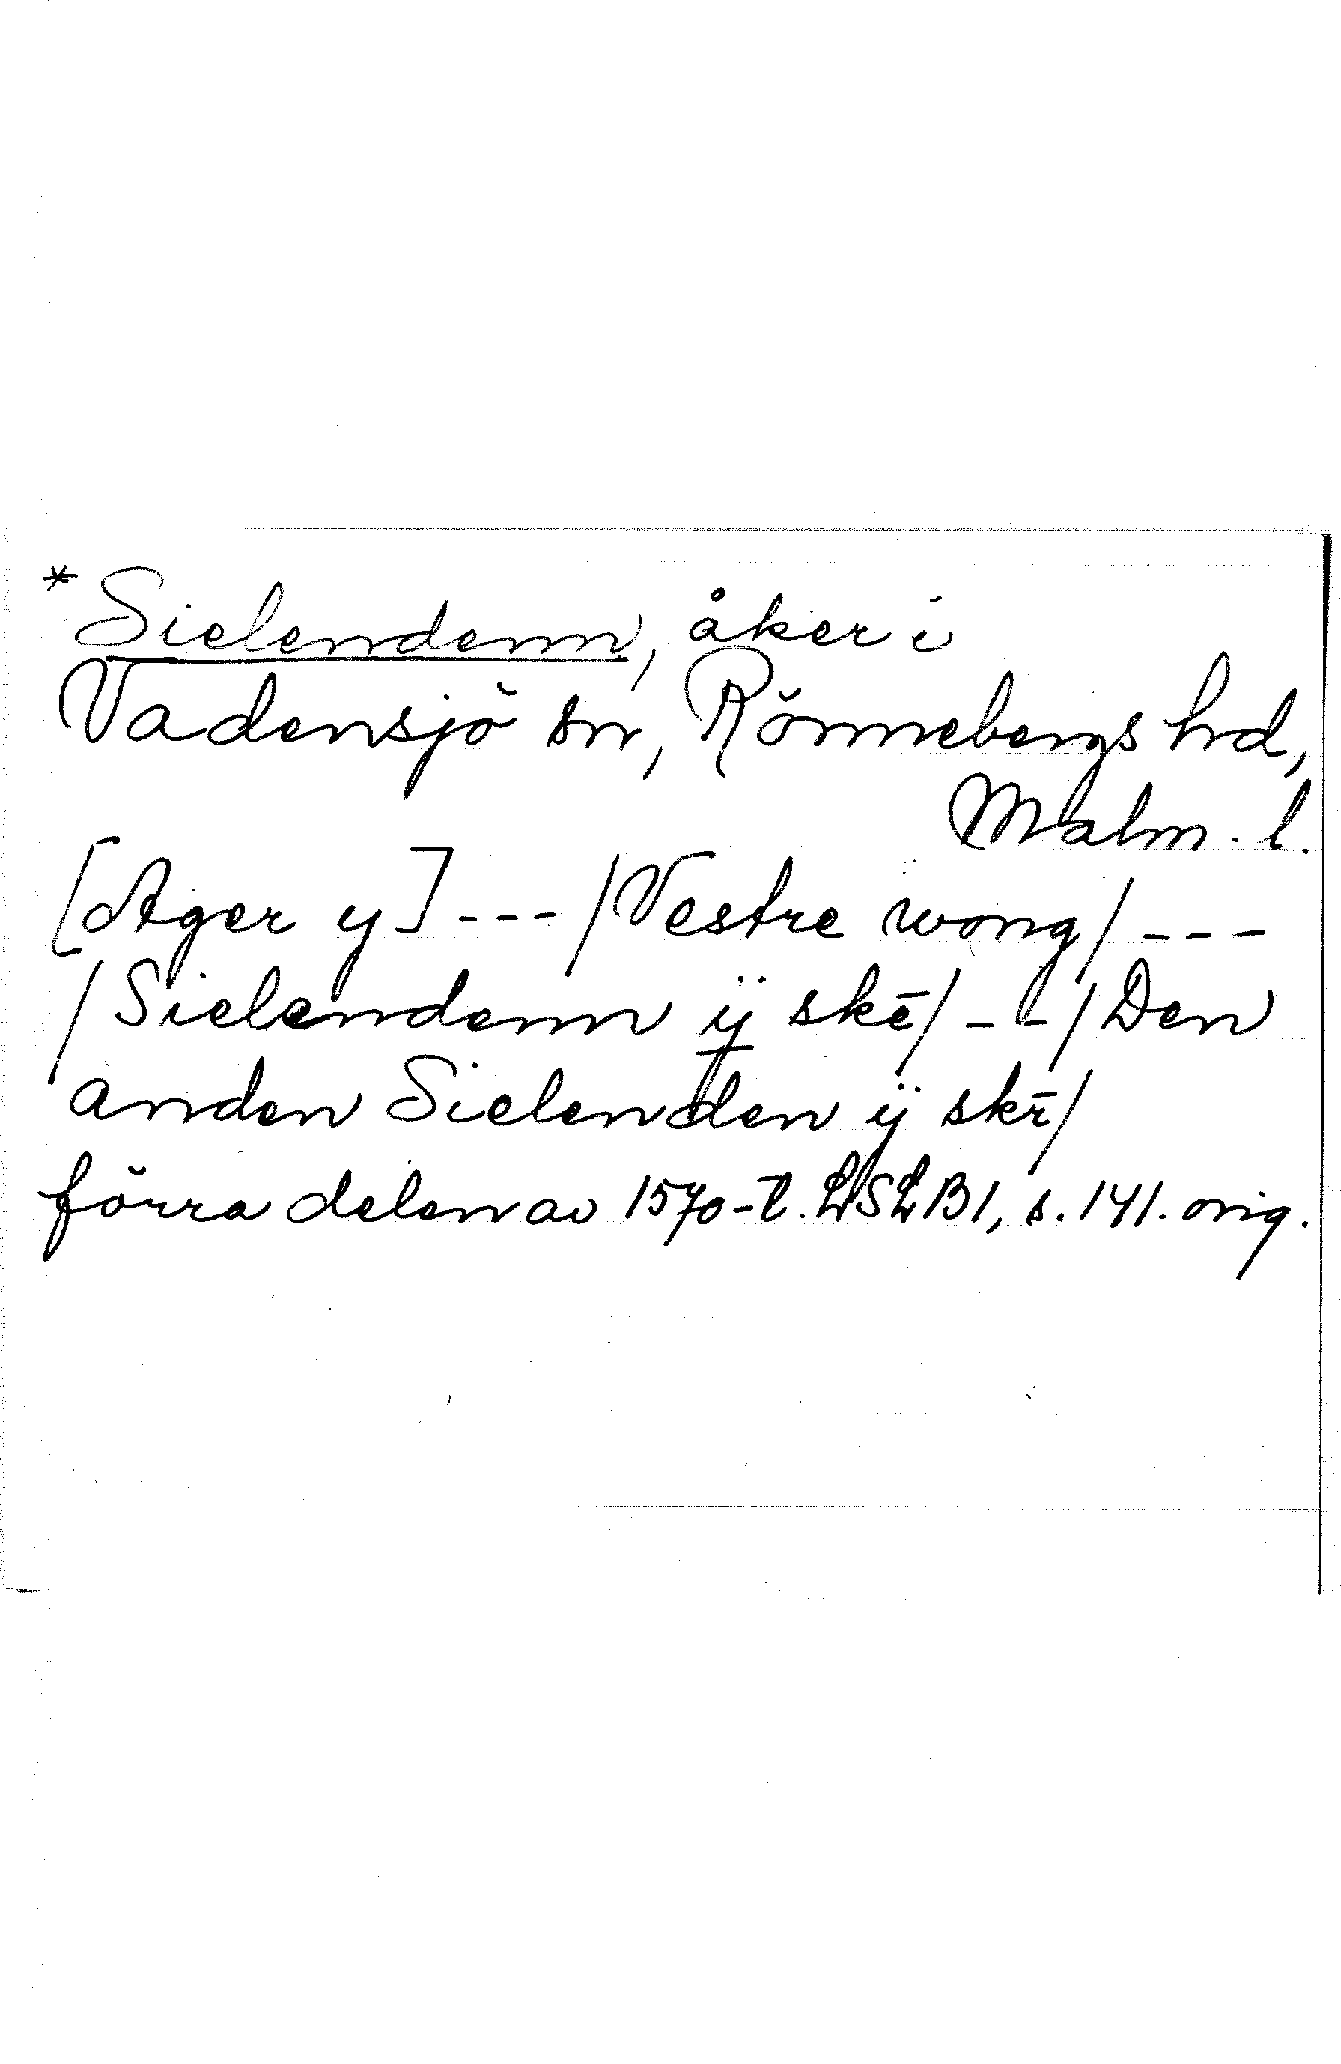 *Sielendenn, åker i
Vadensjö sn, Rönnebergs hd,
Malm. l.
[Ager y] --- /Vestre wong/ ---
/Sielendenn ij skē/ -- /Den
anden Sielenden ij skē/
förra delen av 1570-t. LSLB1, s. 141. orig.